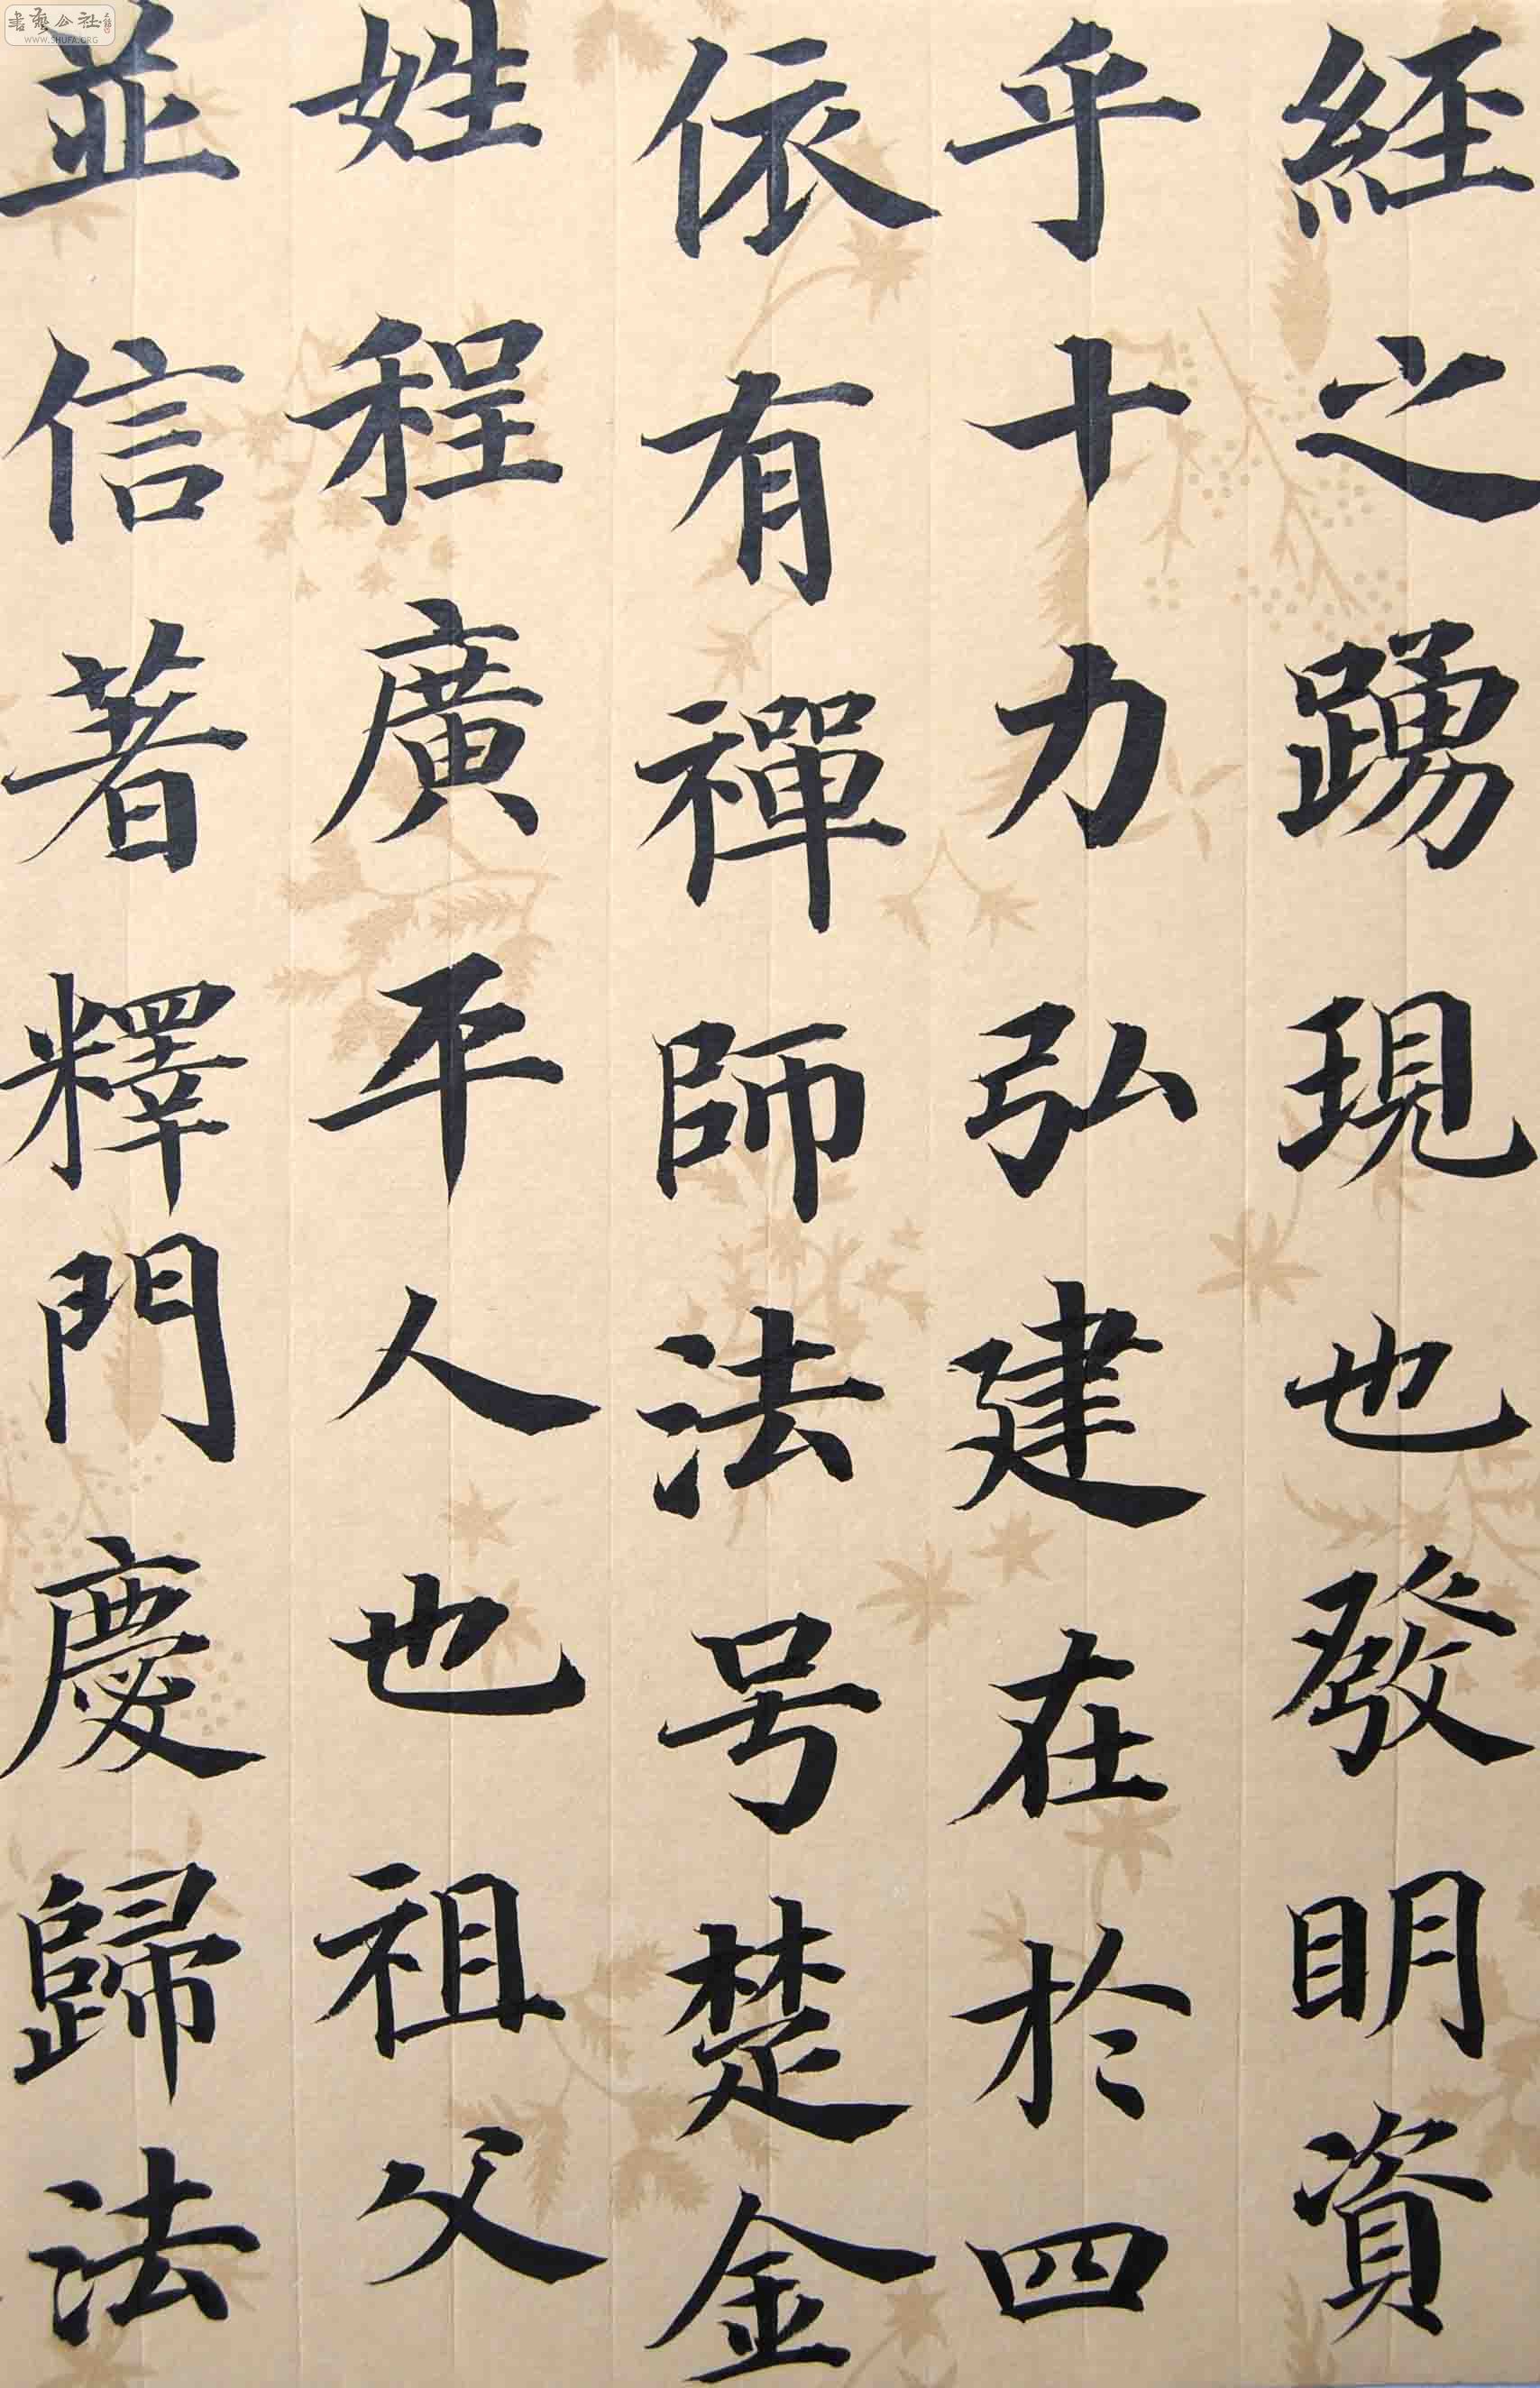 經之踴現也發明資
乎十力弘建在於四
依有禪師法号楚金
姓程廣平人也祖父
並信著釋門慶歸法
書藝公社
WWW.SHUFA.ORG